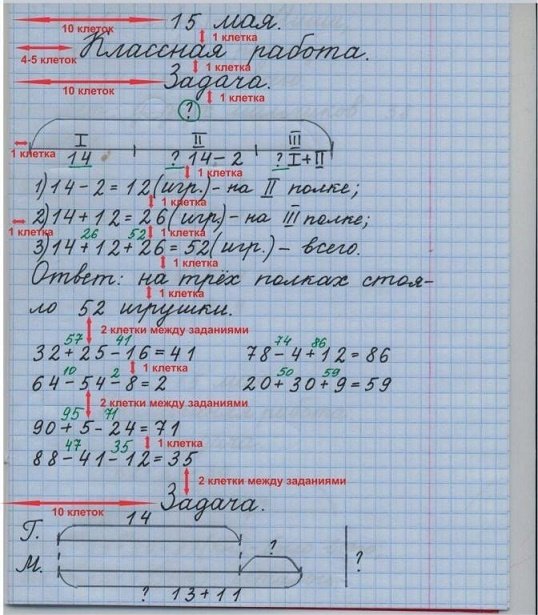 15 мая.
10 клеток
1 клетка
Классная работа.
4-5 клеток
1 клетка
Задача.
10 клеток
1 клетка
?
I II III
1 клетка
14 ? 14-2 ? I+II
1 клетка
1) 14-2=12(игр.)- на II полке;
1 клетка
2) 14+12=26(игр.)- на III полке;
1 клетка
26 52 1 клетка
3) 14+12+26=52(игр.)- всего.
1 клетка
Ответ: на трёх полках стоя-
1 клетка
ло 52 игрушки.
2 клетки между заданиями
57 41 74 86
32+25-16=41 78-4+12=86
1 клетка
10 2 50 59
64-54-8=2 20+30+9=59
2 клетки между заданиями
95 71
90+5-24=71
47 35 1 клетка
88-41-12=35
2 клетки между заданиями
Задача.
10 клеток
14
Г.
?
М.
?
? 13+11